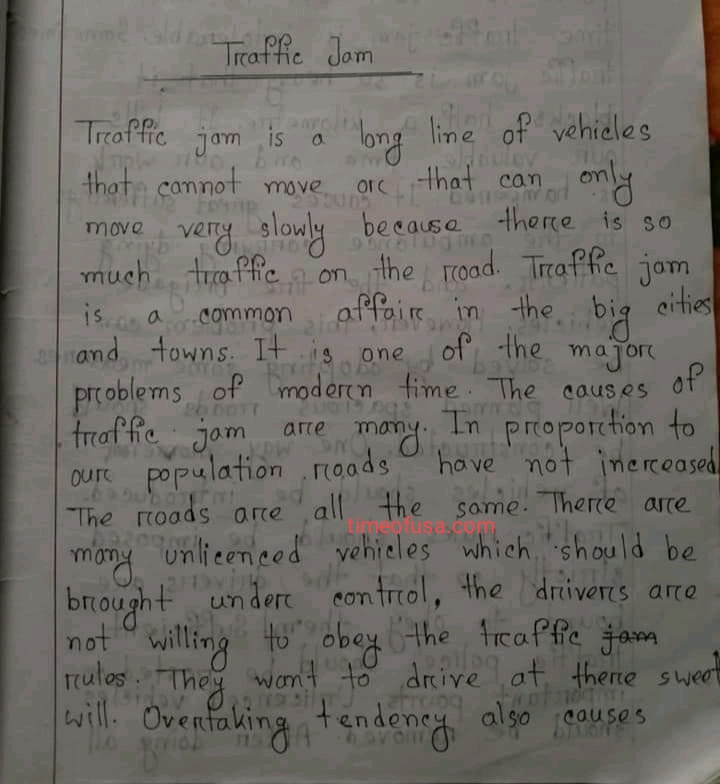 Traffic Jam
Traffic jam is a long line of vehicles
that cannot move or that can only
move very slowly because there is so
much traffic on the road. Traffic jam
is a common affair in the big cities
and towns. It is one of the major
problems of modern time. The causes of
traffic jam are many. In proportion to
our population roads have not increased.
The roads are all the same. There are
timeofusa.com
many unlicenced vehicles which should be
brought under control, the drivers are
not willing to obey the traffic jam
rules. They want to drive at there sweet
will. Overtaking tendency also causes